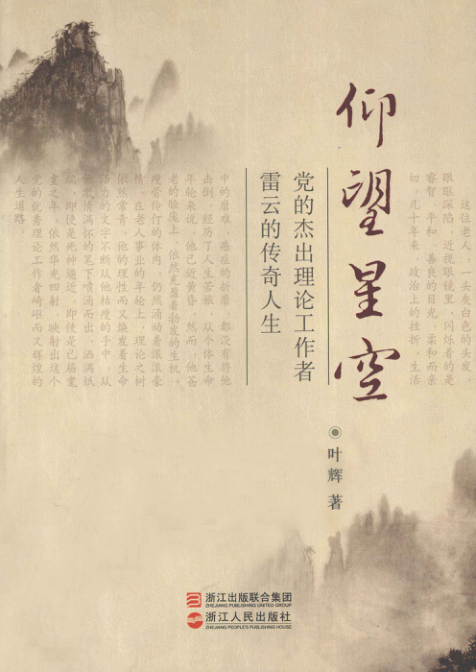 仰望星空
党的杰出理论工作者
雷云的传奇人生
叶辉 著
这位老人，一头灰白色的头发，
眼眼深陷，近视眼镜里，闪烁着的是
睿智、平和、善良的目光，柔和而亲
切。几十年来，政治上的挫折，生活
中的磨难，癌症的折磨，都没有将他
击倒。经历了人生苦旅，从个体生命
年轮来说，他已近黄昏，然而，他苍
老的脸庞上，依然充盈着勃发的生机。
瘦骨伶仃的体内，仍然涌动着滚滚豪
情。在老人事业的年轮上，理论之树
依然常青，他的理性而又焕发着生命
活力的文字不断从他枯瘦的手中，从
激情满怀的笔下喷涌而出，洒满纸
端。即使是死神逼近，即使是已届耄
耋之年，依然华光四射，映射出这个
党的优秀理论工作者崎岖而又辉煌的
人生道路。
浙江出版联合集团
ZHEJIANG PUBLISHING UNITED GROUP
浙江人民出版社
ZHEJIANG PEOPLE'S PUBLISHING HOUSE